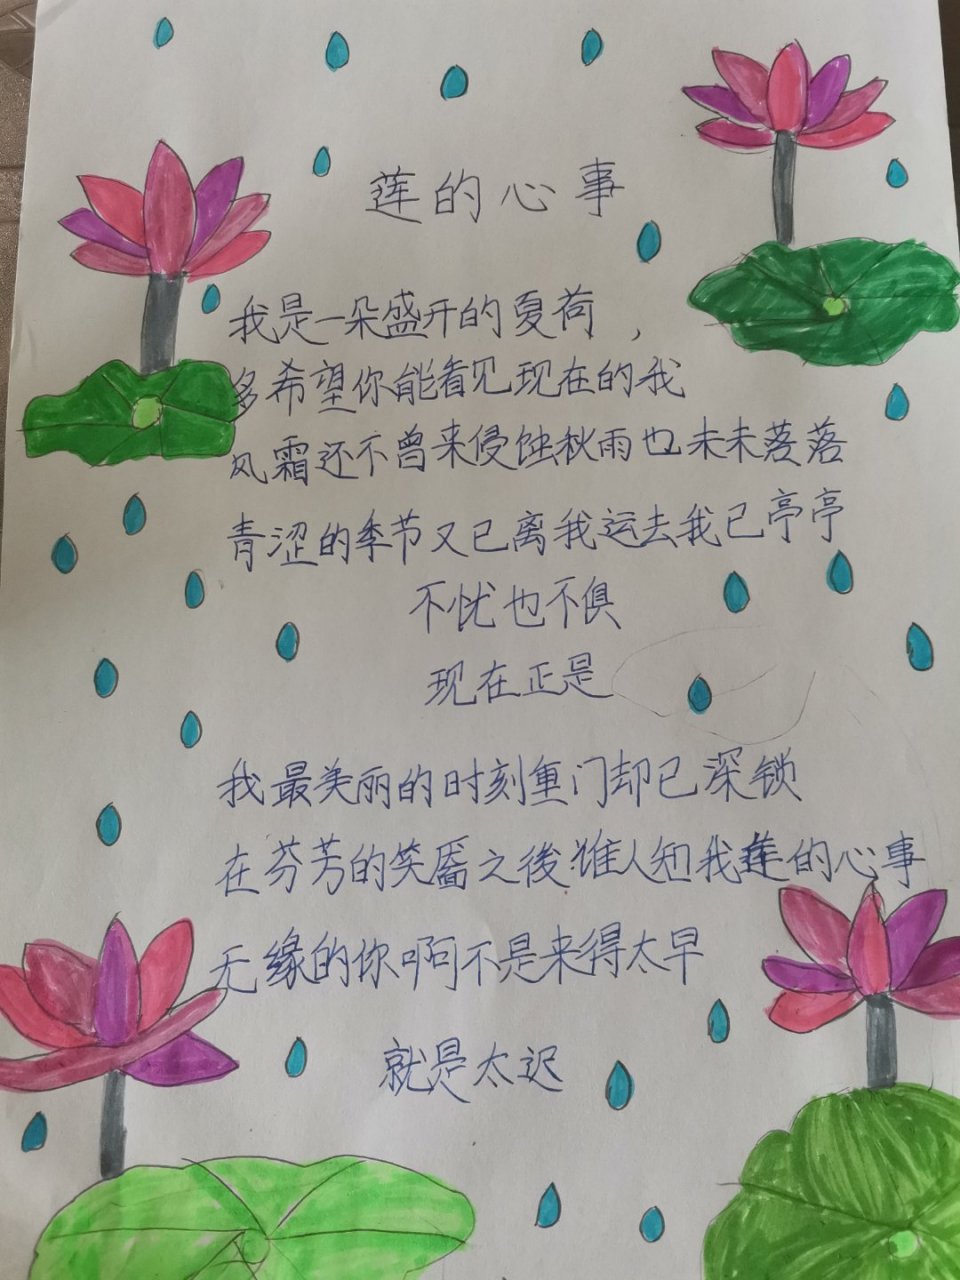 莲的心事
我是一朵盛开的夏荷,
多希望你能看见现在的我
风霜还不曾来侵蚀秋雨也未未落落
青涩的季节又已离我运去我已亭亭
不忧也不惧
现在正是
我最美丽的时刻重门却已深锁
在芬芳的笑靥之後谁人知我莲的心事
无缘的你啊不是来得太早
就是太迟